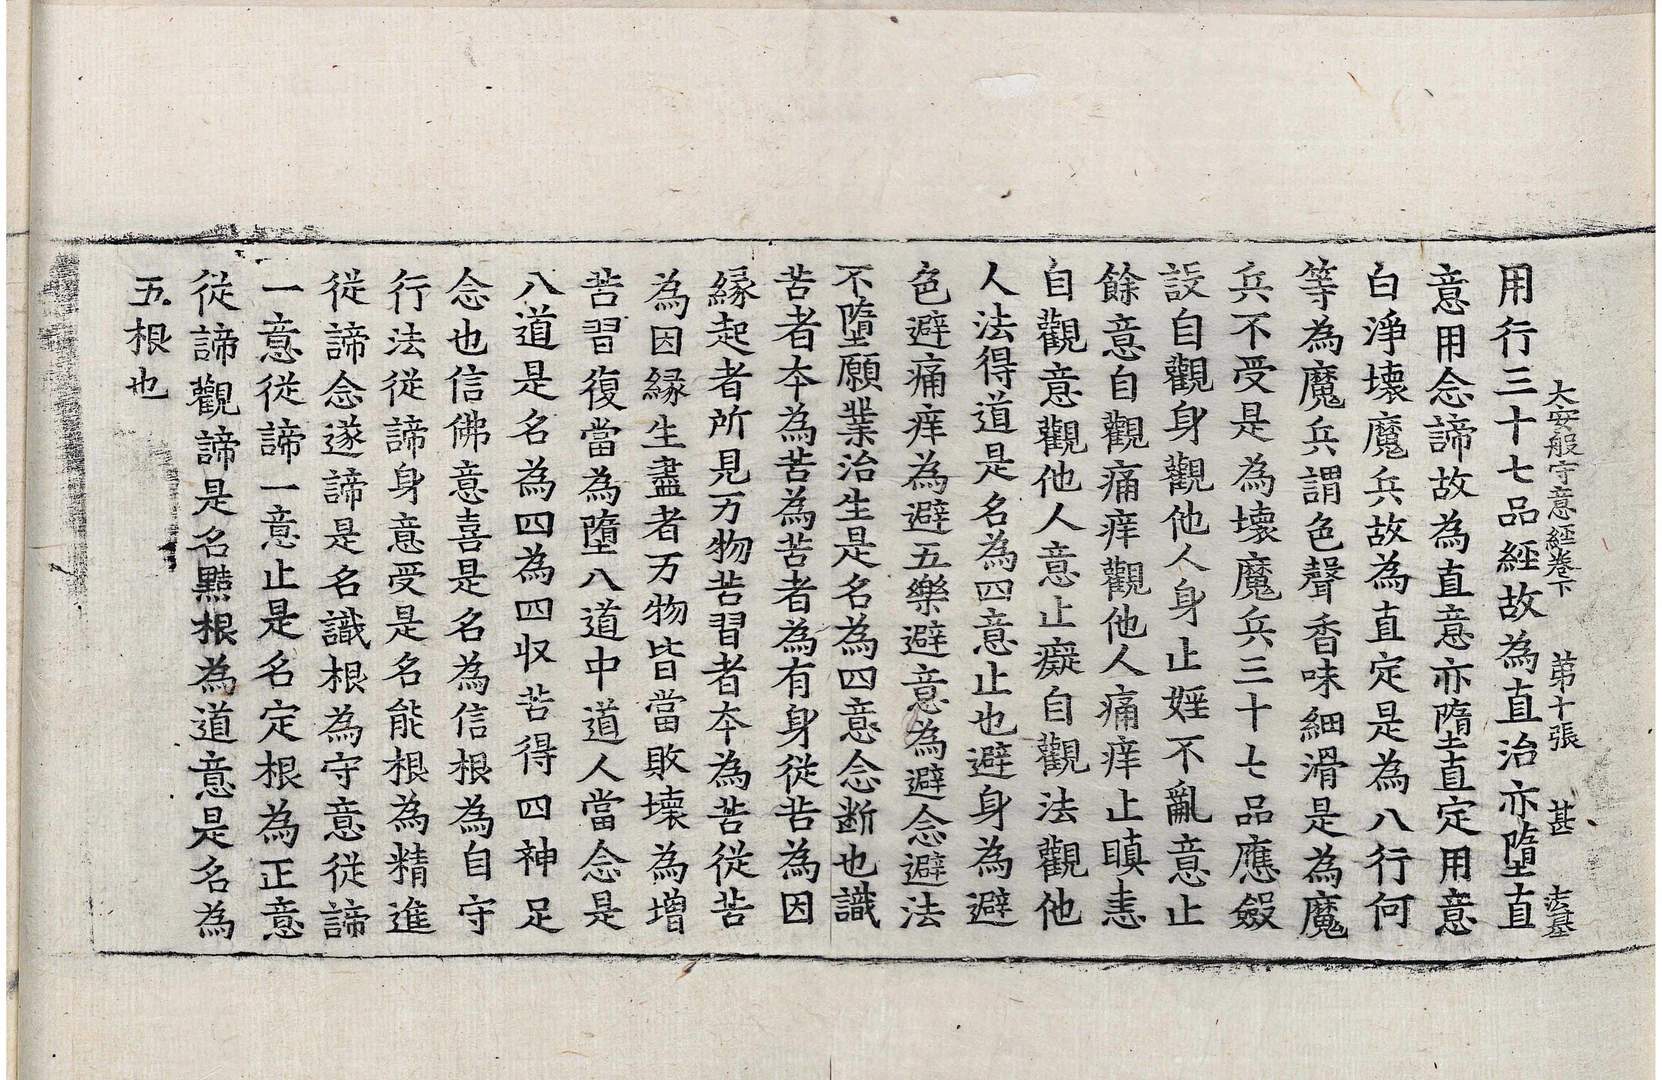 大安般守意經卷下 第十張 甚 法基
用行三十七品經故為直治亦墮直
意用念諦故為直意亦墮直定用意
白淨壞魔兵故為直定是為八行何
等為魔兵謂色聲香味細滑是為魔
兵不受是為壞魔兵三十七品應斂
設自觀身觀他人身止婬不亂意止
餘意自觀痛痒觀他人痛痒止瞋恚
自觀意觀他人意止癡自觀法觀他
人法得道是名為四意止也避身為避
色避痛痒為避五樂避意為避念避法
不墮願業治生是名為四意念斷也識
苦者本為苦為苦者為有身從苦為因
緣起者所見万物苦習者本為苦從苦
為因緣生盡者万物皆當敗壞為增
苦習復當為墮八道中道人當念是
八道是名為四為四収苦得四神足
念也信佛意喜是名為信根為自守
行法從諦身意受是名能根為精進
從諦念遂諦是名識根為守意從諦
一意從諦一意止是名定根為正意
從諦觀諦是名黠根為道意是名為
五根也